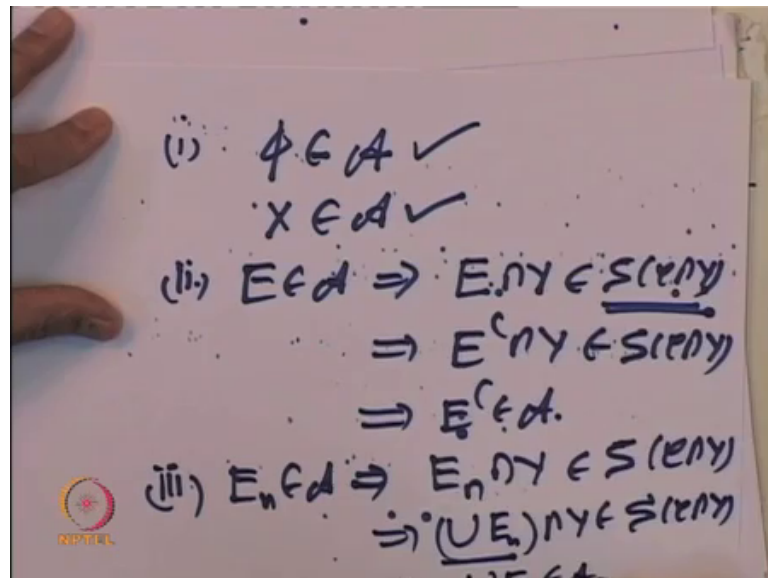 (i) ϕ ∈ A ✓
X ∈ A ✓
(ii) E ∈ A ⇒ E ∩ Y ∈ S(C ∩ Y)
⇒ E^c ∩ Y ∈ S(C ∩ Y)
⇒ E^c ∈ A.
(iii) E_n ∈ A ⇒ E_n ∩ Y ∈ S(C ∩ Y)
⇒ (∪ E_n) ∩ Y ∈ S(C ∩ Y)
NPTEL